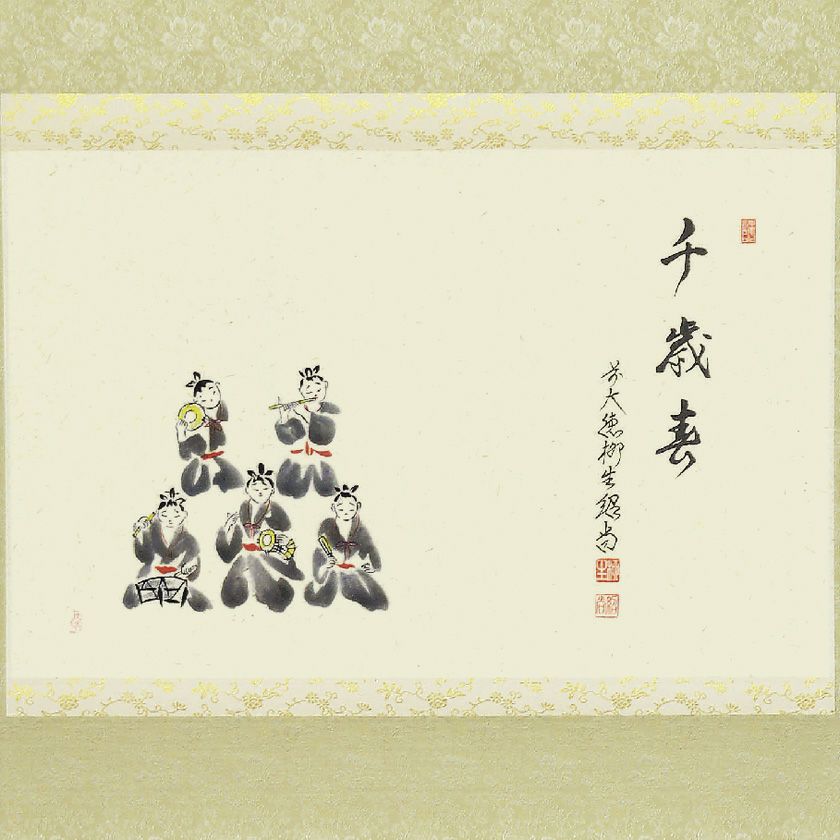 千歳春
前大徳柳生紹尚